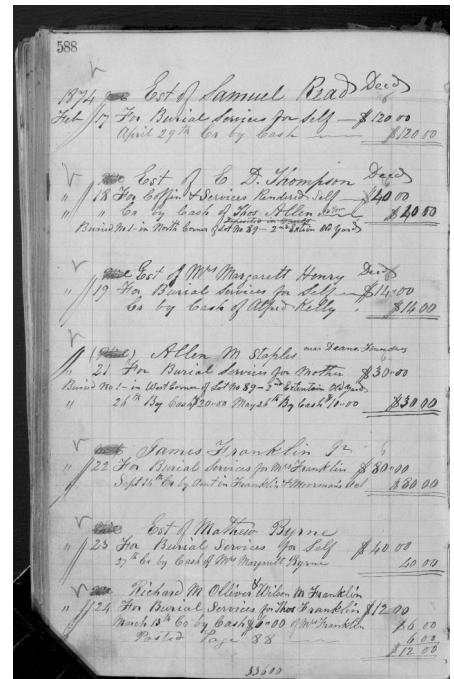 588
1874 Est of Samuel Read Decd
Feb 17 For Burial Services for Self — $120.00
April 29th Cr by Cash — $120.00
Est of E D. Thompson Decd
" 18 For Coffin & Services Rendered Self — $40.00
" " Cr by Cash of Thos Allen $40.00
Buried No. 1 - in North Corner of Lot No 89 - 2nd Extention Old Yard
Est of Mrs Margarett Henry Decd
" 19 For Burial Services for Self — $14.00
Cr by Cash of Alfred Kelly " $14.00
Allen M Staples near Deane Foundry
" 21 For Burial Services for Mother $30.00
Buried No 1 - in West Corner of Lot No 89 - 2nd Extention Old Yard
" 26th By Cash $20.00 May 26th By Cash $10.00 $30.00
James Franklin Jr
" 22 For Burial Services for Mrs Franklin $80.00
Sept 14th Cr by Amt in Franklin & Moormans Act $80.00
Est of Mathew Byrne
" 23 For Burial Services for Self $40.00
27th Cr by Cash of Mrs Margarett Byrne 40.00
Richard M Olliver & Wilson M Franklin
" 24 For Burial Services for Thos Franklin $12.00
March 13th Cr by Cash of Mrs Franklin $6.00
Posted Page 88 6.00
$12.00
33600